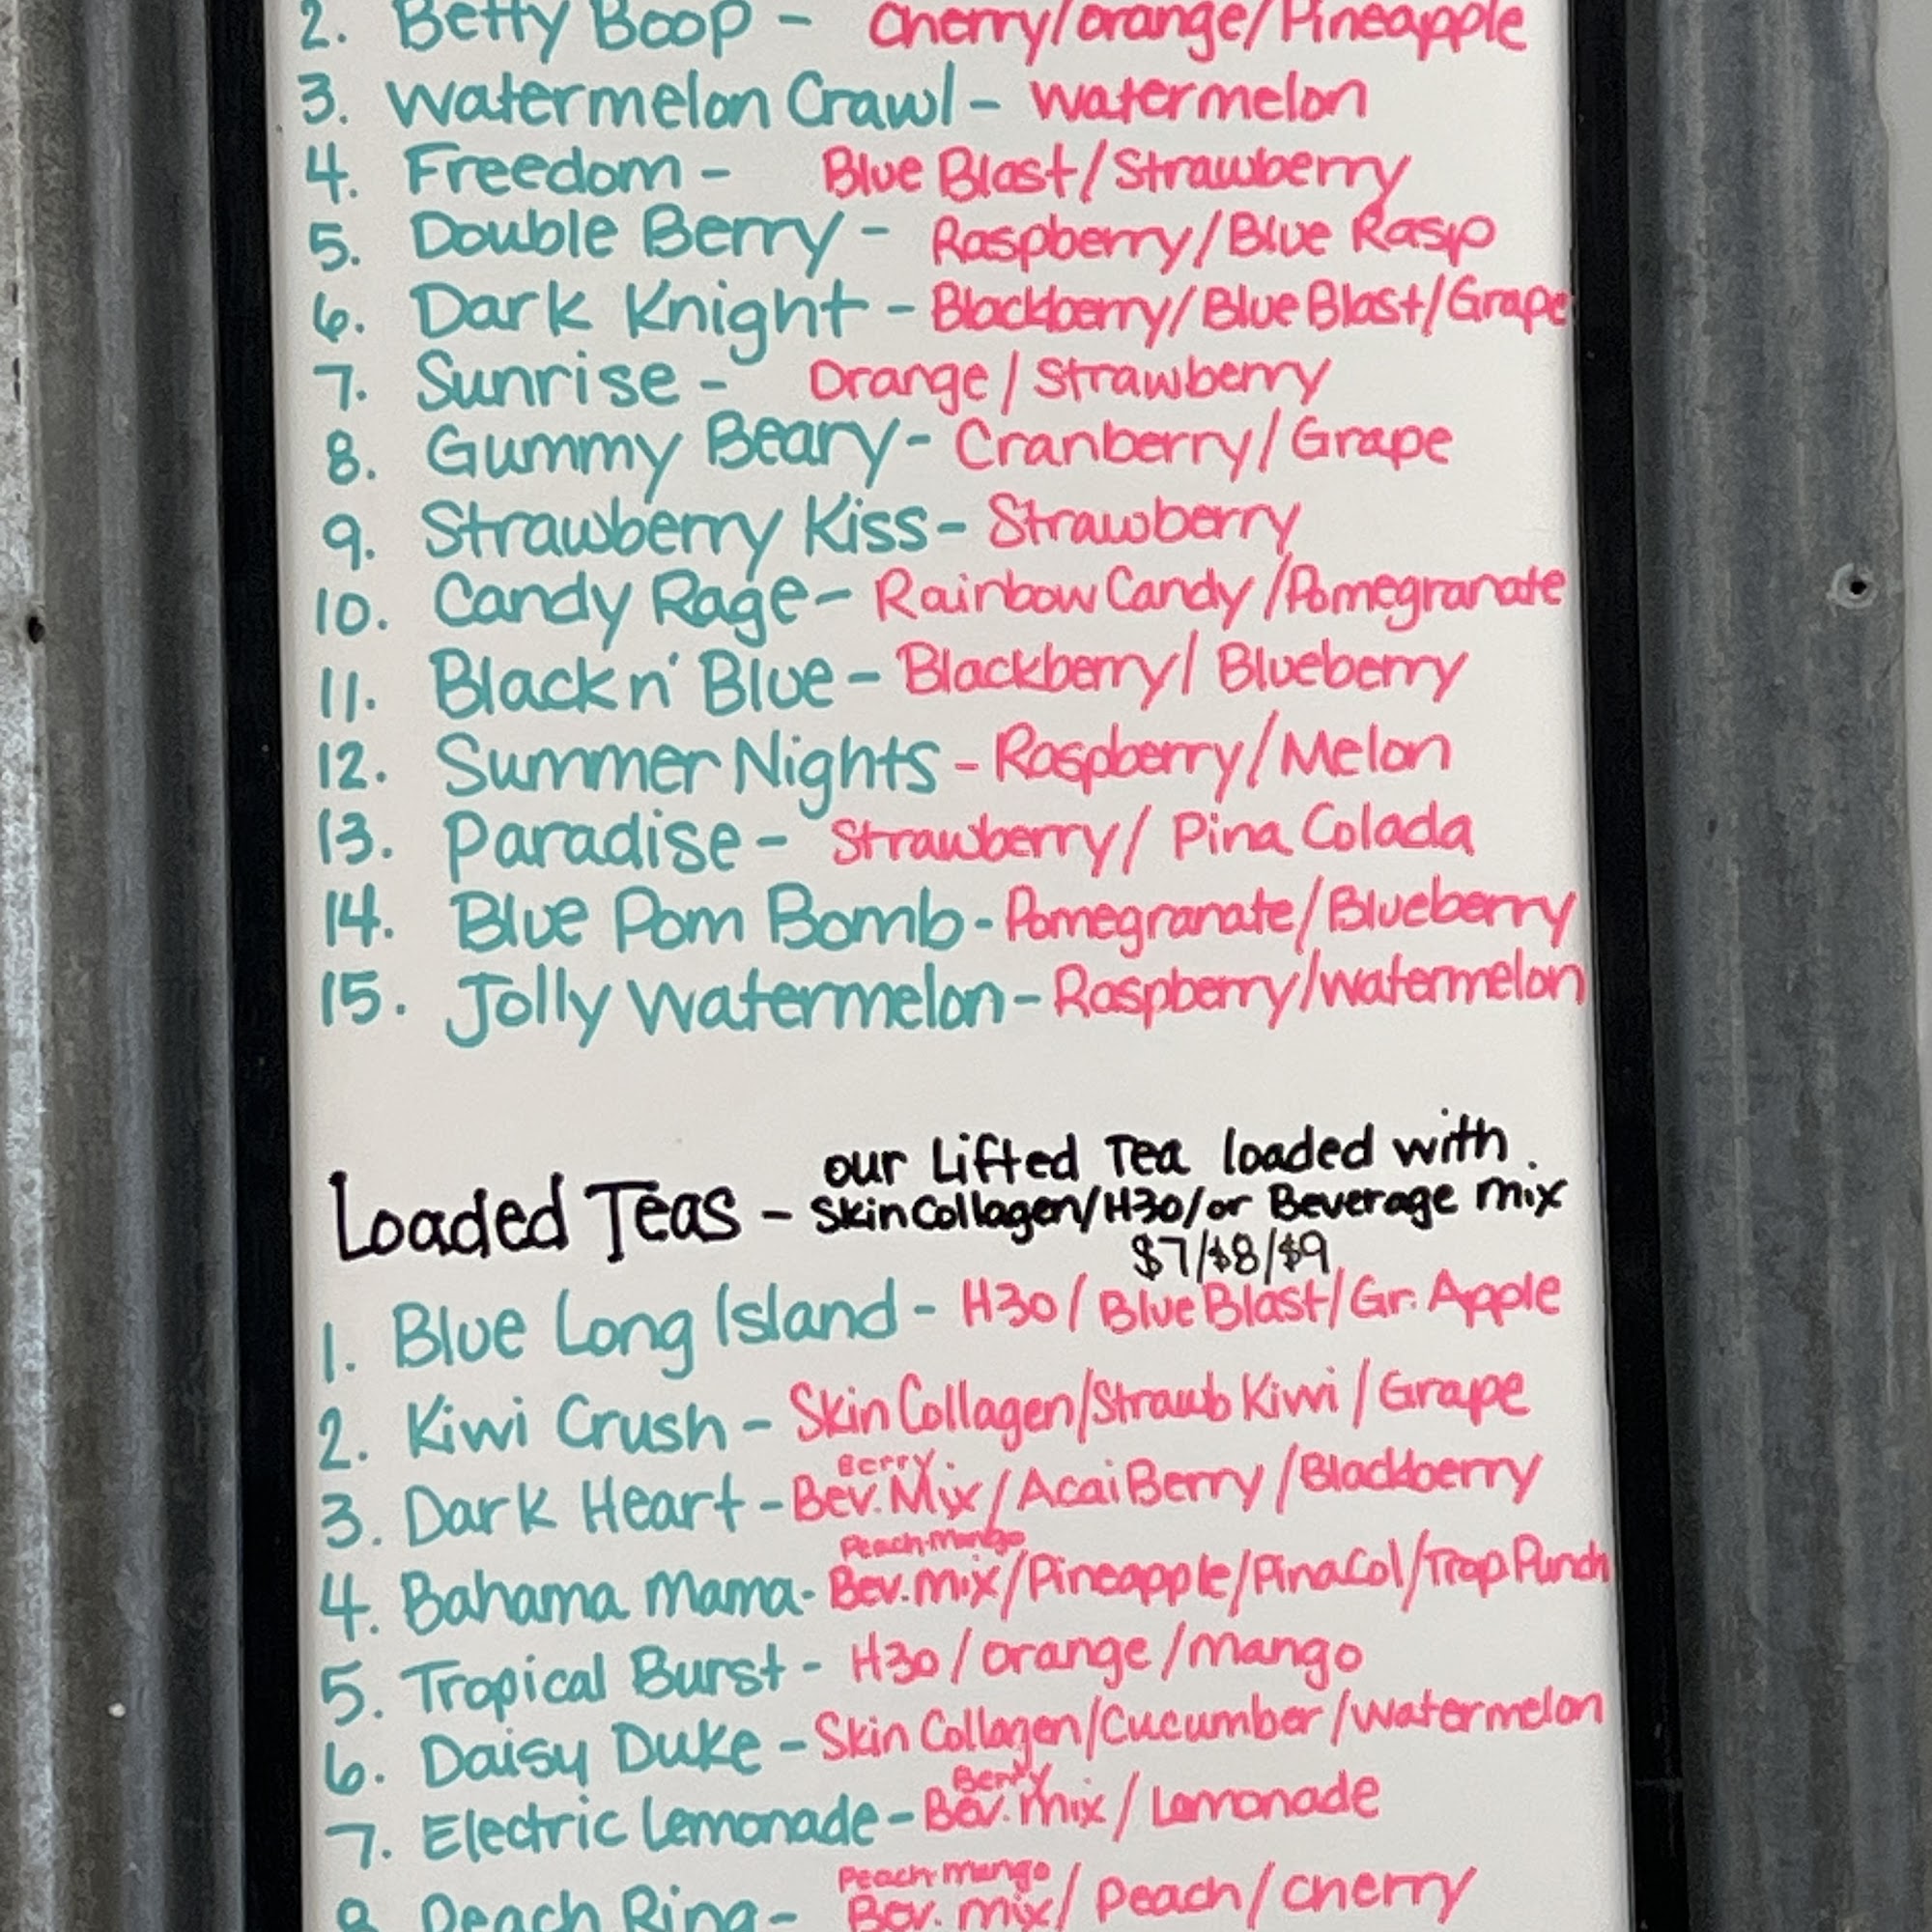 2. Betty Boop - Cherry/Orange/Pineapple
3. Watermelon Crawl - Watermelon
4. Freedom - Blue Blast/Strawberry
5. Double Berry - Raspberry/Blue Rasp
6. Dark Knight - Blackberry/Blue Blast/Grape
7. Sunrise - Orange/Strawberry
8. Gummy Beary - Cranberry/Grape
9. Strawberry Kiss - Strawberry
10. Candy Rage - Rainbow Candy/Pomegranate
11. Black n' Blue - Blackberry/Blueberry
12. Summer Nights - Raspberry/Melon
13. Paradise - Strawberry/Pina Colada
14. Blue Pom Bomb - Pomegranate/Blueberry
15. Jolly Watermelon - Raspberry/Watermelon
our Lifted Tea loaded with
Loaded Teas - Skin Collagen/H30/or Beverage Mix
$7/$8/$9
1. Blue Long Island - H30/Blue Blast/Gr. Apple
2. Kiwi Crush - Skin Collagen/Strawb Kiwi/Grape
Berry
3. Dark Heart - Bev. Mix/Acai Berry/Blackberry
Peach-Mango
4. Bahama Mama - Bev. mix/Pineapple/PinaCol/Trop. Punch
5. Tropical Burst - H30/Orange/Mango
6. Daisy Duke - Skin Collagen/Cucumber/Watermelon
Berry
7. Electric Lemonade - Bev. Mix/Lemonade
Peach-Mango
8. Peach Ring - Bev. mix/Peach/Cherry